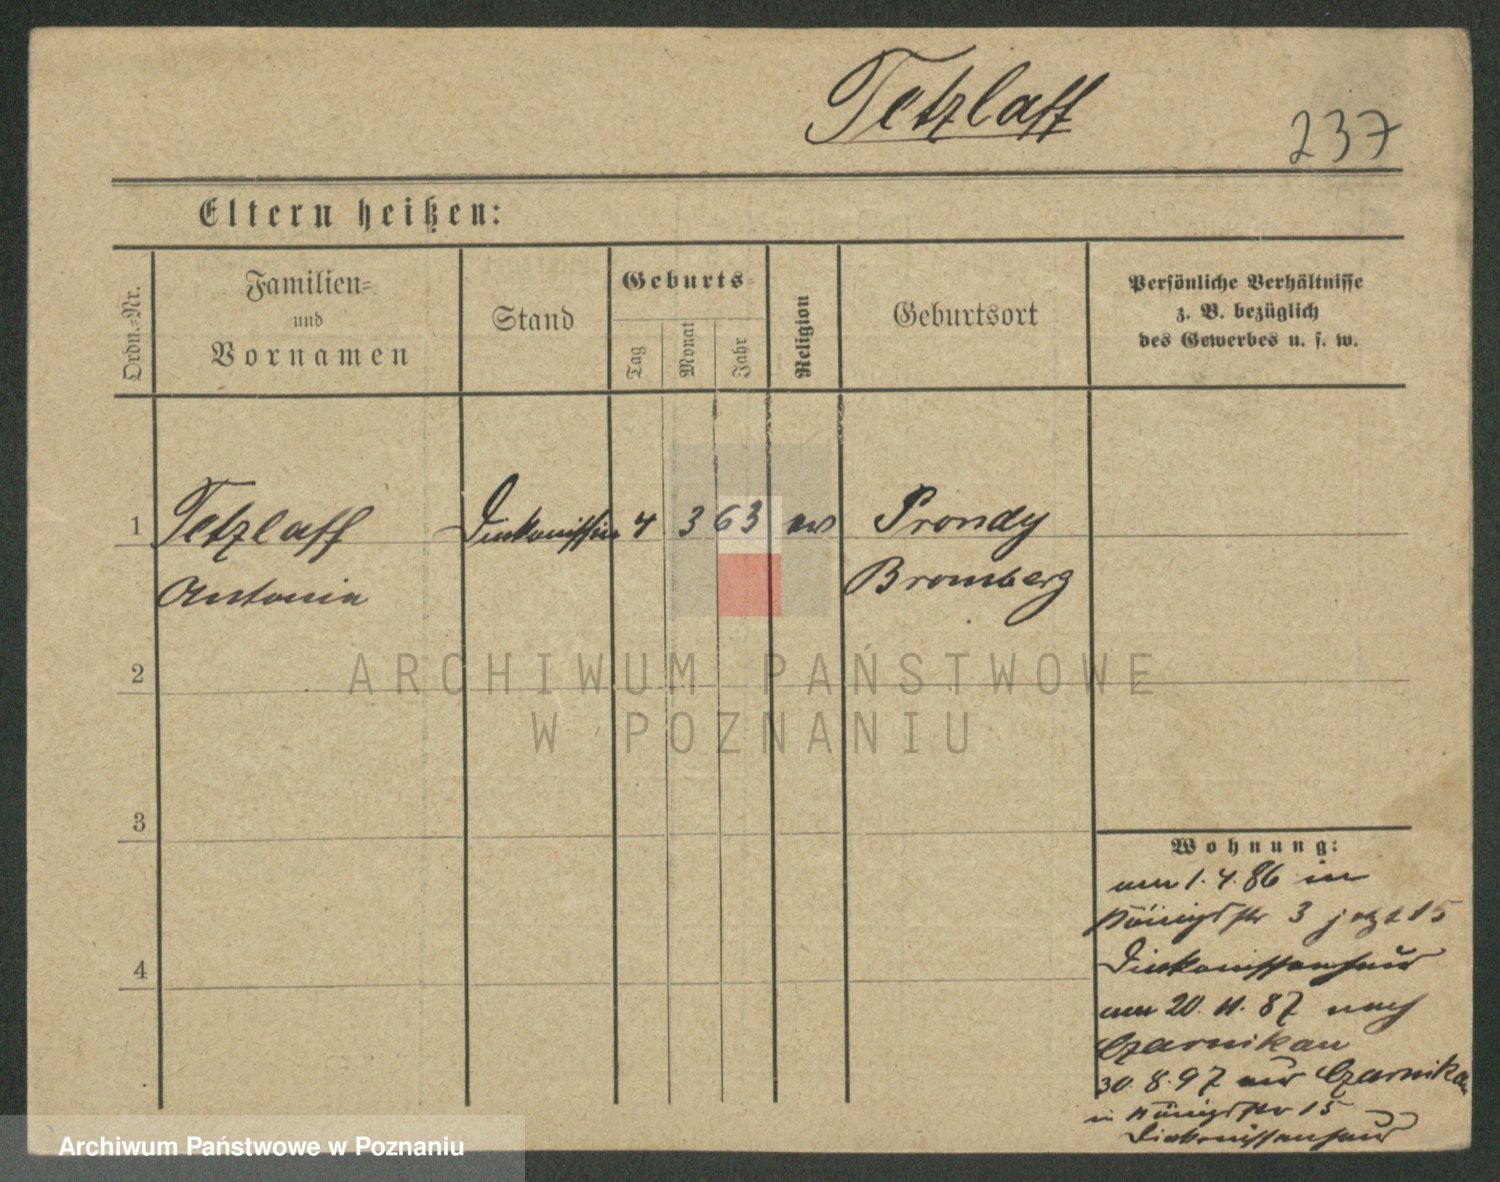 Tetzlaff
237
Eltern heißen:
Ordn.-Nr.
Familien-
und
Vornamen
Stand
Geburts-
Tag
Monat
Jahr
Religion
Geburtsort
Persönliche Verhältnisse
z. B. bezüglich
des Gewerbes u. s. w.
1 Tetzlaff Diakonissin 4 3 63 ev Prondy
Antonia Bromberg
2
3
4
Wohnung:
am 1.4.86 in
Königstr 3 jetzt 15
Diakonissenhaus
am 20.11.87 nach
Czarnikau
30.8.97 aus Czarnikau
in Königstr 15
Diakonissenhaus
ARCHIWUM PAŃSTWOWE
W POZNANIU
Archiwum Państwowe w Poznaniu